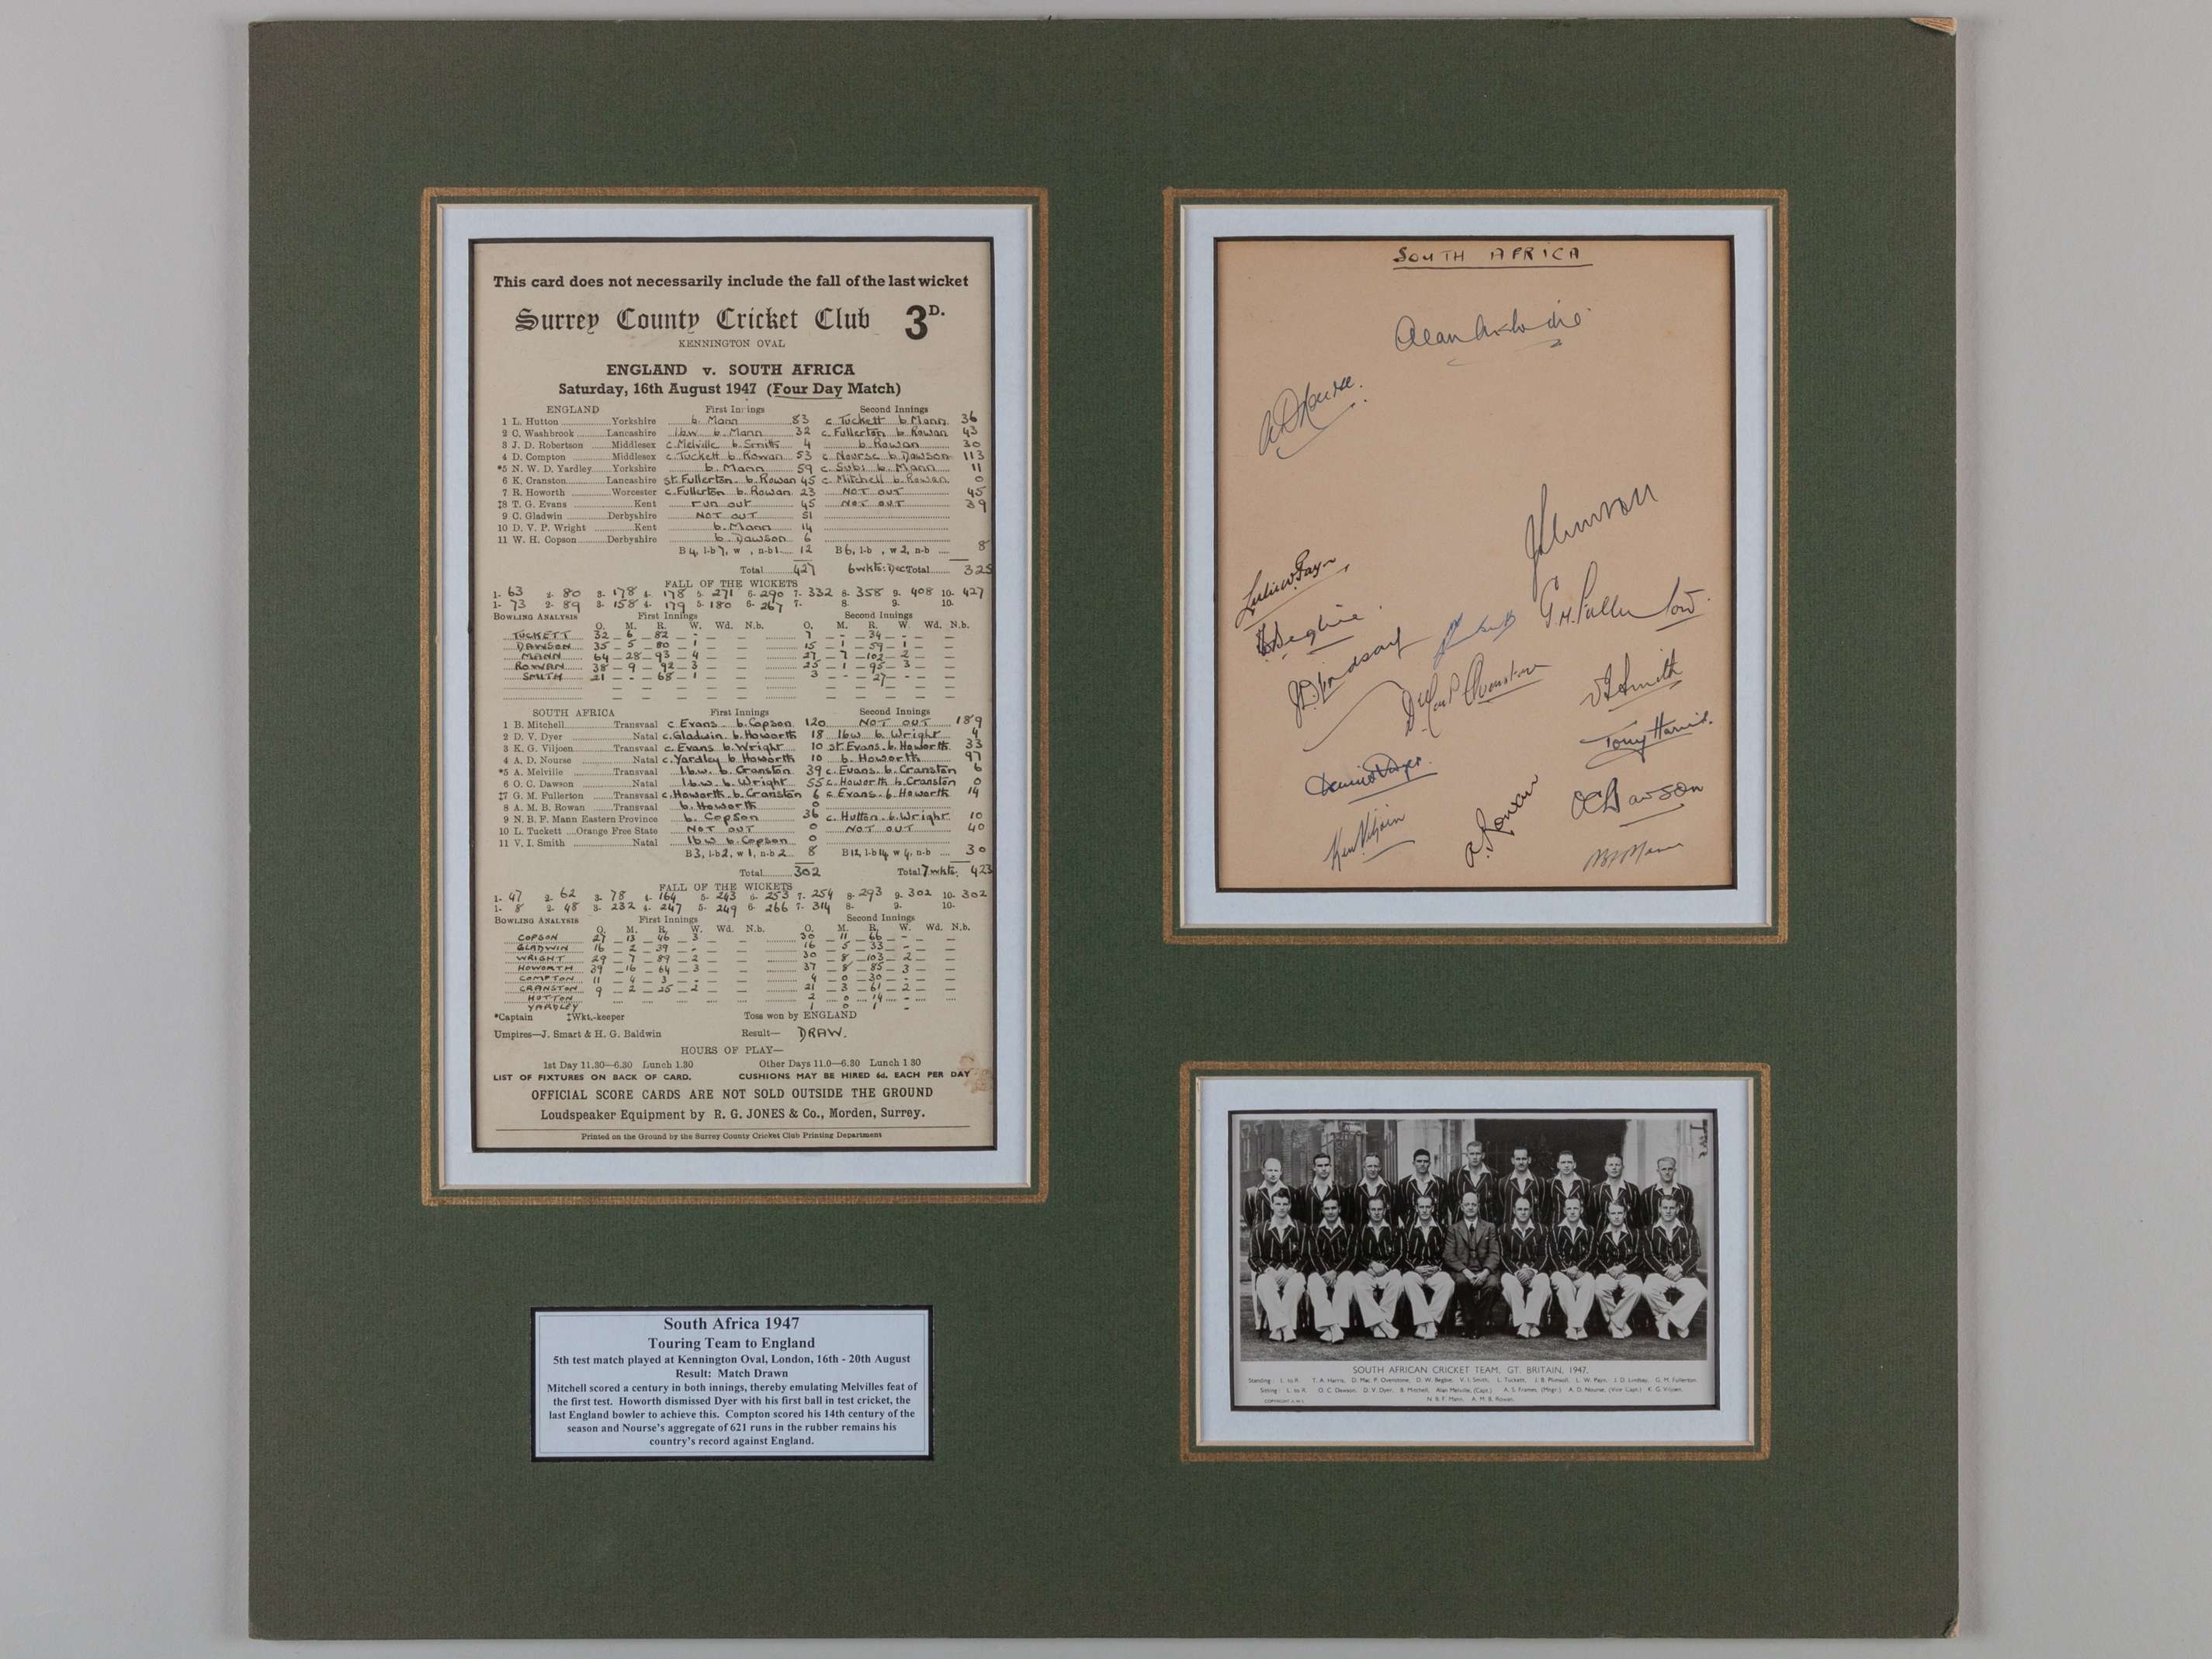 This card does not necessarily include the fall of the last wicket
Surrey County Cricket Club 3D.
KENNINGTON OVAL
ENGLAND v. SOUTH AFRICA
Saturday, 16th August 1947 (Four Day Match)
ENGLAND First Innings Second Innings
1 L. Hutton Yorkshire b. Mann 83 c Tuckett b Mann 36
2 C. Washbrook Lancashire lbw b. Mann 32 c. Fullerton b Rowan 43
3 J. D. Robertson Middlesex c Melville b. Smith 4 b Rowan 30
4 D. Compton Middlesex c. Tuckett b. Rowan 53 c Nourse b Dawson 113
*5 N. W. D. Yardley Yorkshire b. Mann 59 c. Sub: b. Mann 11
6 K. Cranston Lancashire st. Fullerton b Rowan 45 c Mitchell b Rowan 0
7 R. Howorth Worcester c. Fullerton b. Rowan 23 NOT OUT 45
‡8 T. G. Evans Kent run out 45 NOT OUT 39
9 C. Gladwin Derbyshire NOT OUT 51
10 D. V. P. Wright Kent b. Mann 14
11 W. H. Copson Derbyshire b. Dawson 6
B 4, l-b 7, w , n-b 1 12 B 6, l-b , w 2, n-b 8
Total 427 6 wkts: Dec Total 325
FALL OF THE WICKETS
1- 63 2- 80 3- 178 4- 178 5- 271 6- 290 7- 332 8- 358 9- 408 10- 427
1- 73 2- 89 3- 158 4- 179 5- 180 6- 267 7- 8- 9- 10-
BOWLING ANALYSIS First Innings Second Innings
O. M. R. W. Wd. N.b. O. M. R. W. Wd. N.b.
TUCKETT 32 – 6 – 82 – - 7 – - – 34 – -
DAWSON 35 – 5 – 80 – 1 15 – 1 – 59 – 1
MANN 64 – 28 – 93 – 4 27 – 7 – 102 – 2
ROWAN 38 – 9 – 92 – 3 25 – 1 – 95 – 3
SMITH 21 – - – 68 – 1 3 – - – 27 –
SOUTH AFRICA First Innings Second Innings
1 B. Mitchell Transvaal c Evans b. Copson 120 NOT OUT 189
2 D. V. Dyer Natal c. Gladwin b. Howorth 18 lbw b. Wright 4
3 K. G. Viljoen Transvaal c. Evans b. Wright 10 st. Evans. b. Howorth 33
4 A. D. Nourse Natal c. Yardley b Howorth 10 b. Howorth 97
*5 A. Melville Transvaal lbw. b. Cranston 39 c. Evans. b. Cranston 6
6 O. C. Dawson Natal lbw. b. Wright 55 c. Howorth b. Cranston 0
‡7 G. M. Fullerton Transvaal c. Howorth. b. Cranston 6 c. Evans. b. Howorth 14
8 A. M. B. Rowan Transvaal b. Howorth 0
9 N. B. F. Mann Eastern Province b. Copson 36 c. Hutton. b. Wright 10
10 L. Tuckett Orange Free State NOT OUT 0 NOT OUT 40
11 V. I. Smith Natal lbw b. Copson 0
B 3, l-b 2, w 1, n-b 2 8 B 12, l-b 14 w 4, n-b 30
Total 302 Total 7 wkts. 423
FALL OF THE WICKETS
1- 47 2- 62 3- 78 4- 164 5- 243 6- 253 7- 254 8- 293 9- 302 10- 302
1- 8 2- 48 3- 232 4- 247 5- 249 6- 266 7- 314 8- 9- 10-
BOWLING ANALYSIS First Innings Second Innings
O. M. R. W. Wd. N.b. O. M. R. W. Wd. N.b.
COPSON 27 – 13 – 46 – 3 30 – 11 – 66 – -
GLADWIN 16 – 2 – 39 – - 16 – 5 – 33 – -
WRIGHT 29 – 7 – 89 – 2 30 – 8 – 103 – 2
HOWORTH 39 – 16 – 64 – 3 37 – 8 – 85 – 3
COMPTON 11 – 4 – 3 – - 4 – 0 – 30 – -
CRANSTON 9 – 2 – 25 – 2 21 – 3 – 61 – 2
HUTTON 2 0 14 -
YARDLEY 1 0 1 -
*Captain ‡Wkt.-keeper Toss won by ENGLAND
Umpires—J. Smart & H. G. Baldwin Result— DRAW.
HOURS OF PLAY—
1st Day 11.30—6.30 Lunch 1.30 Other Days 11.0—6.30 Lunch 1 30
LIST OF FIXTURES ON BACK OF CARD. CUSHIONS MAY BE HIRED 6d. EACH PER DAY
OFFICIAL SCORE CARDS ARE NOT SOLD OUTSIDE THE GROUND
Loudspeaker Equipment by R. G. JONES & Co., Morden, Surrey.
Printed on the Ground by the Surrey County Cricket Club Printing Department
SOUTH AFRICA
Alan Melville
A D Nourse.
G. M. Fullerton.
D W Begbie.
J D Lindsay
D. Mac P Overstone
V I Smith
Tony Harris.
Dennis V Dyer.
O C Dawson
Ken Viljoen
A. Rowan
N B F Mann
South Africa 1947
Touring Team to England
5th test match played at Kennington Oval, London, 16th - 20th August
Result: Match Drawn
Mitchell scored a century in both innings, thereby emulating Melvilles feat of
the first test. Howorth dismissed Dyer with his first ball in test cricket, the
last England bowler to achieve this. Compton scored his 14th century of the
season and Nourse's aggregate of 621 runs in the rubber remains his
country's record against England.
SOUTH AFRICAN CRICKET TEAM, GT. BRITAIN, 1947.
Standing: L. to R. T. A. Harris, D. Mac. P. Overstone, D. W. Begbie, V. I. Smith, L. Tuckett, J. B. Plimsoll, L. W. Payn, J. D. Lindsay, G. M. Fullerton.
Sitting: L. to R. O. C. Dawson, D. V. Dyer, B. Mitchell, Alan Melville, (Capt.) A. S. Frames, (Mngr.) A. D. Nourse, (Vice Capt.) K. G. Viljoen,
N. B. F. Mann, A. M. B. Rowan.